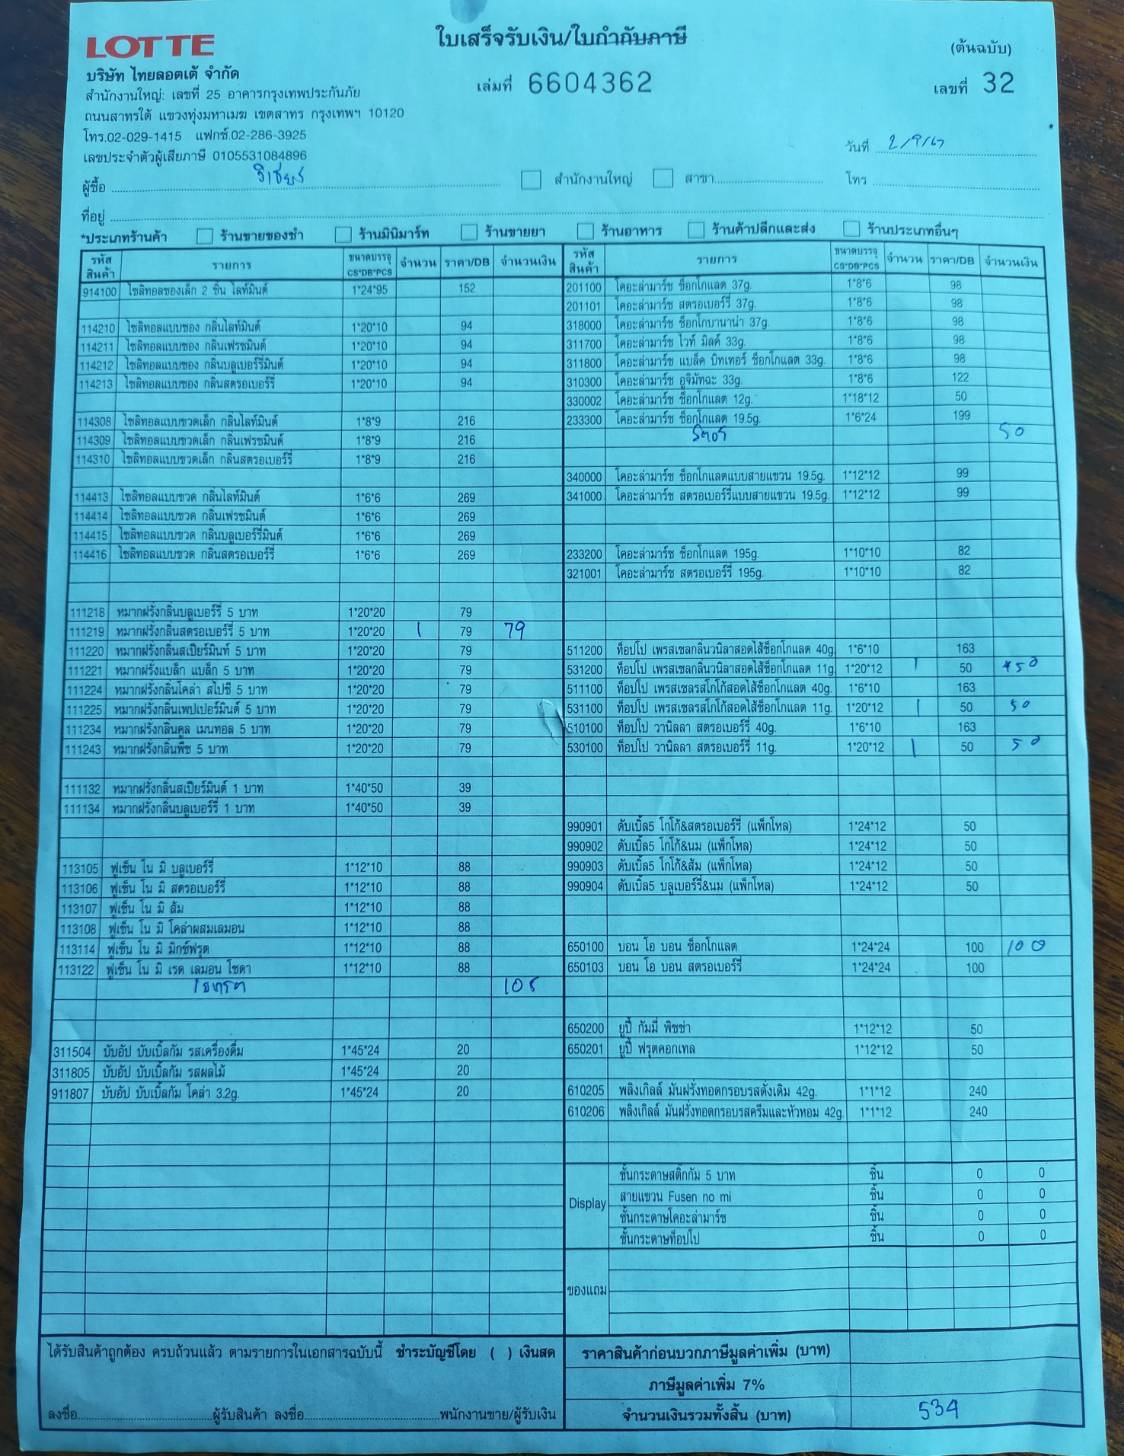 LOTTE
ใบเสร็จรับเงิน/ใบกำกับภาษี
(ต้นฉบับ)
บริษัท ไทยลอตเต้ จำกัด
เล่มที่ 6604362
เลขที่ 32
สำนักงานใหญ่: เลขที่ 25 อาคารกรุงเทพประกันภัย
ถนนสาทรใต้ แขวงทุ่งมหาเมฆ เขตสาทร กรุงเทพฯ 10120
โทร.02-029-1415 แฟกซ์.02-286-3925
เลขประจำตัวผู้เสียภาษี 0105531084896
วันที่ 2/9/67
ผู้ซื้อ วิเชียร สำนักงานใหญ่ สาขา โทร
ที่อยู่
*ประเภทร้านค้า ร้านขายของชำ ร้านมินิมาร์ท ร้านขายยา ร้านอาหาร ร้านค้าปลีกและส่ง ร้านประเภทอื่นๆ
รหัสสินค้า รายการ ขนาดบรรจุ CS*DB*PCS จำนวน ราคา/DB จำนวนเงิน
914100 ไซลิทอลซองเล็ก 2 ชิ้น ไลท์มินต์ 1*24*95 152
114210 ไซลิทอลแบบซอง กลิ่นไลท์มินต์ 1*20*10 94
114211 ไซลิทอลแบบซอง กลิ่นเฟรชมินต์ 1*20*10 94
114212 ไซลิทอลแบบซอง กลิ่นบลูเบอร์รี่มินต์ 1*20*10 94
114213 ไซลิทอลแบบซอง กลิ่นสตรอเบอร์รี่ 1*20*10 94
114308 ไซลิทอลแบบขวดเล็ก กลิ่นไลท์มินต์ 1*8*9 216
114309 ไซลิทอลแบบขวดเล็ก กลิ่นเฟรชมินต์ 1*8*9 216
114310 ไซลิทอลแบบขวดเล็ก กลิ่นสตรอเบอร์รี่ 1*8*9 216
114413 ไซลิทอลแบบขวด กลิ่นไลท์มินต์ 1*6*6 269
114414 ไซลิทอลแบบขวด กลิ่นเฟรชมินต์ 1*6*6 269
114415 ไซลิทอลแบบขวด กลิ่นบลูเบอร์รี่มินต์ 1*6*6 269
114416 ไซลิทอลแบบขวด กลิ่นสตรอเบอร์รี่ 1*6*6 269
111218 หมากฝรั่งกลิ่นบลูเบอร์รี่ 5 บาท 1*20*20 79
111219 หมากฝรั่งกลิ่นสตรอเบอร์รี่ 5 บาท 1*20*20 1 79 79
111220 หมากฝรั่งกลิ่นสเปียร์มินท์ 5 บาท 1*20*20 79
111221 หมากฝรั่งแบล็ก แบล็ก 5 บาท 1*20*20 79
111224 หมากฝรั่งกลิ่นโคล่า สไปซี่ 5 บาท 1*20*20 79
111225 หมากฝรั่งกลิ่นเพปเปอร์มินต์ 5 บาท 1*20*20 79
111234 หมากฝรั่งกลิ่นคูล เมนทอล 5 บาท 1*20*20 79
111243 หมากฝรั่งกลิ่นพีช 5 บาท 1*20*20 79
111132 หมากฝรั่งกลิ่นสเปียร์มินต์ 1 บาท 1*40*50 39
111134 หมากฝรั่งกลิ่นบลูเบอร์รี่ 1 บาท 1*40*50 39
113105 ฟูเซ็น โน มิ บลูเบอร์รี่ 1*12*10 88
113106 ฟูเซ็น โน มิ สตรอเบอร์รี่ 1*12*10 88
113107 ฟูเซ็น โน มิ ส้ม 1*12*10 88
113108 ฟูเซ็น โน มิ โคล่าผสมเลมอน 1*12*10 88
113114 ฟูเซ็น โน มิ มิกซ์ฟรุต 1*12*10 88
113122 ฟูเซ็น โน มิ เรด เลมอน โซดา 1*12*10 88
105
311504 บับอัป บับเบิ้ลกัม รสเครื่องดื่ม 1*45*24 20
311805 บับอัป บับเบิ้ลกัม รสผลไม้ 1*45*24 20
911807 บับอัป บับเบิ้ลกัม โคล่า 3.2g. 1*45*24 20
รหัสสินค้า รายการ ขนาดบรรจุ CS*DB*PCS จำนวน ราคา/DB จำนวนเงิน
201100 โคอะล่ามาร์ช ช็อกโกแลต 37g. 1*8*6 98
201101 โคอะล่ามาร์ช สตรอเบอร์รี่ 37g. 1*8*6 98
318000 โคอะล่ามาร์ช ช็อกโกบานาน่า 37g. 1*8*6 98
311700 โคอะล่ามาร์ช ไวท์ มิลค์ 33g. 1*8*6 98
311800 โคอะล่ามาร์ช แบล็ค บิทเทอร์ ช็อกโกแลต 33g. 1*8*6 98
310300 โคอะล่ามาร์ช อูจิมัทฉะ 33g. 1*8*6 122
330002 โคอะล่ามาร์ช ช็อกโกแลต 12g. 1*18*12 50
233300 โคอะล่ามาร์ช ช็อกโกแลต 19.5g. 1*6*24 199
50
340000 โคอะล่ามาร์ช ช็อกโกแลตแบบสายแขวน 19.5g. 1*12*12 99
341000 โคอะล่ามาร์ช สตรอเบอร์รี่แบบสายแขวน 19.5g. 1*12*12 99
233200 โคอะล่ามาร์ช ช็อกโกแลต 195g. 1*10*10 82
321001 โคอะล่ามาร์ช สตรอเบอร์รี่ 195g. 1*10*10 82
511200 ท็อปโป เพรสเซลกลิ่นวนิลาสอดไส้ช็อกโกแลต 40g. 1*6*10 163
531200 ท็อปโป เพรสเซลกลิ่นวนิลาสอดไส้ช็อกโกแลต 11g. 1*20*12 1 50 50
511100 ท็อปโป เพรสเซลรสโกโก้สอดไส้ช็อกโกแลต 40g. 1*6*10 163
531100 ท็อปโป เพรสเซลรสโกโก้สอดไส้ช็อกโกแลต 11g. 1*20*12 1 50 50
510100 ท็อปโป วานิลลา สตรอเบอร์รี่ 40g. 1*6*10 163
530100 ท็อปโป วานิลลา สตรอเบอร์รี่ 11g. 1*20*12 1 50 50
990901 ดับเบิ้ล5 โกโก้&สตรอเบอร์รี่ (แพ็กโหล) 1*24*12 50
990902 ดับเบิ้ล5 โกโก้&นม (แพ็กโหล) 1*24*12 50
990903 ดับเบิ้ล5 โกโก้&ส้ม (แพ็กโหล) 1*24*12 50
990904 ดับเบิ้ล5 บลูเบอร์รี่&นม (แพ็กโหล) 1*24*12 50
650100 บอน โอ บอน ช็อกโกแลต 1*24*24 100 100
650103 บอน โอ บอน สตรอเบอร์รี่ 1*24*24 100
650200 ยูปี้ กัมมี่ พิซซ่า 1*12*12 50
650201 ยูปี้ ฟรุตคอกเทล 1*12*12 50
610205 พลิงเกิลล์ มันฝรั่งทอดกรอบรสดั้งเดิม 42g. 1*1*12 240
610206 พลิงเกิลล์ มันฝรั่งทอดกรอบรสครีมและหัวหอม 42g. 1*1*12 240
Display
ชั้นกระดาษสติ๊กกัม 5 บาท ชิ้น 0 0
สายแขวน Fusen no mi ชิ้น 0 0
ชั้นกระดาษโคอะล่ามาร์ช ชิ้น 0 0
ชั้นกระดาษท็อปโป ชิ้น 0 0
ของแถม
ได้รับสินค้าถูกต้อง ครบถ้วนแล้ว ตามรายการในเอกสารฉบับนี้ ชำระบัญชีโดย ( ) เงินสด
ราคาสินค้าก่อนบวกภาษีมูลค่าเพิ่ม (บาท)
ภาษีมูลค่าเพิ่ม 7%
ลงชื่อ ผู้รับสินค้า ลงชื่อ พนักงานขาย/ผู้รับเงิน
จำนวนเงินรวมทั้งสิ้น (บาท) 534